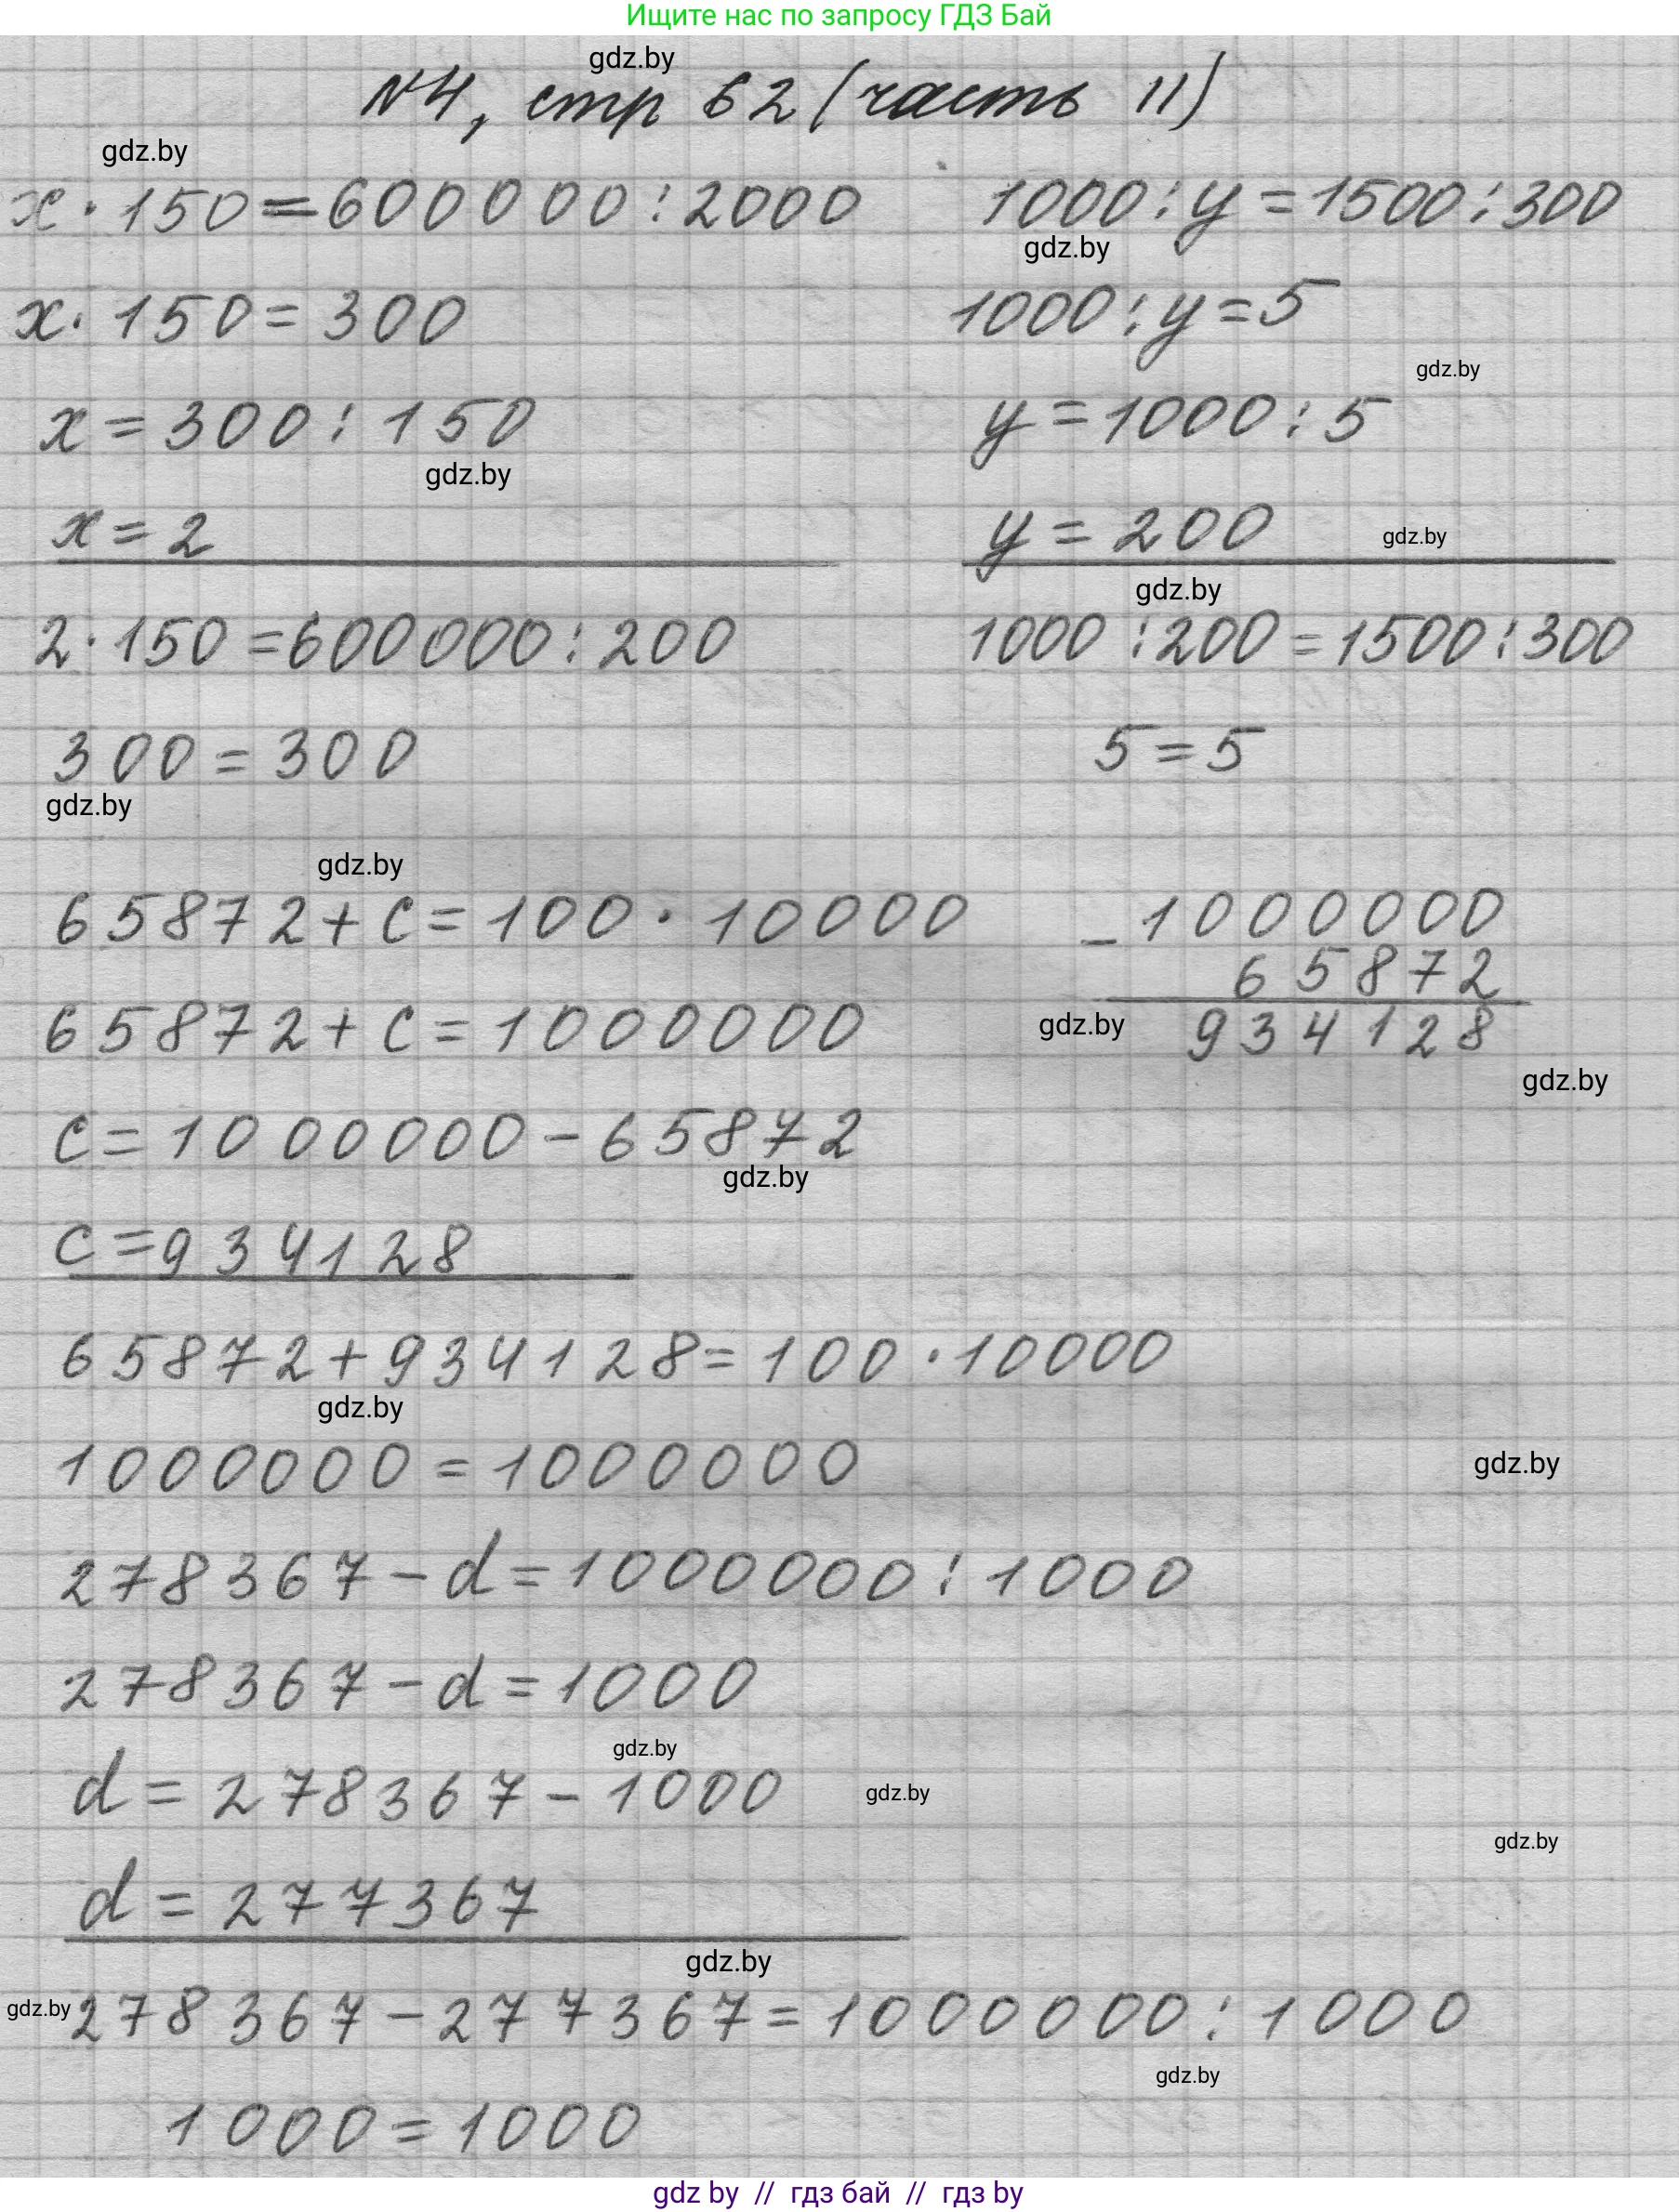 Ищите нас по запросу ГДЗ Бай
gdz.by
№4, стр 62 (часть II)
gdz.by
x · 150 = 600 000 : 2000
1000 : y = 1500 : 300
gdz.by
x · 150 = 300
1000 : y = 5
gdz.by
x = 300 : 150
y = 1000 : 5
gdz.by
x = 2
y = 200
gdz.by
gdz.by
2 · 150 = 600000 : 200
1000 : 200 = 1500 : 300
300 = 300
5 = 5
gdz.by
gdz.by
65872 + c = 100 · 10000
- 1000000
65872
65872 + c = 1000000
gdz.by
934128
gdz.by
c = 1000000 - 65872
gdz.by
c = 934128
65872 + 934128 = 100 · 10000
gdz.by
1000000 = 1000000
gdz.by
278367 - d = 1000000 : 1000
278367 - d = 1000
gdz.by
d = 278367 - 1000
gdz.by
gdz.by
d = 277367
gdz.by
gdz.by
278367 - 277367 = 1000000 : 1000
gdz.by
1000 = 1000
gdz by // гдз бай // гдз by